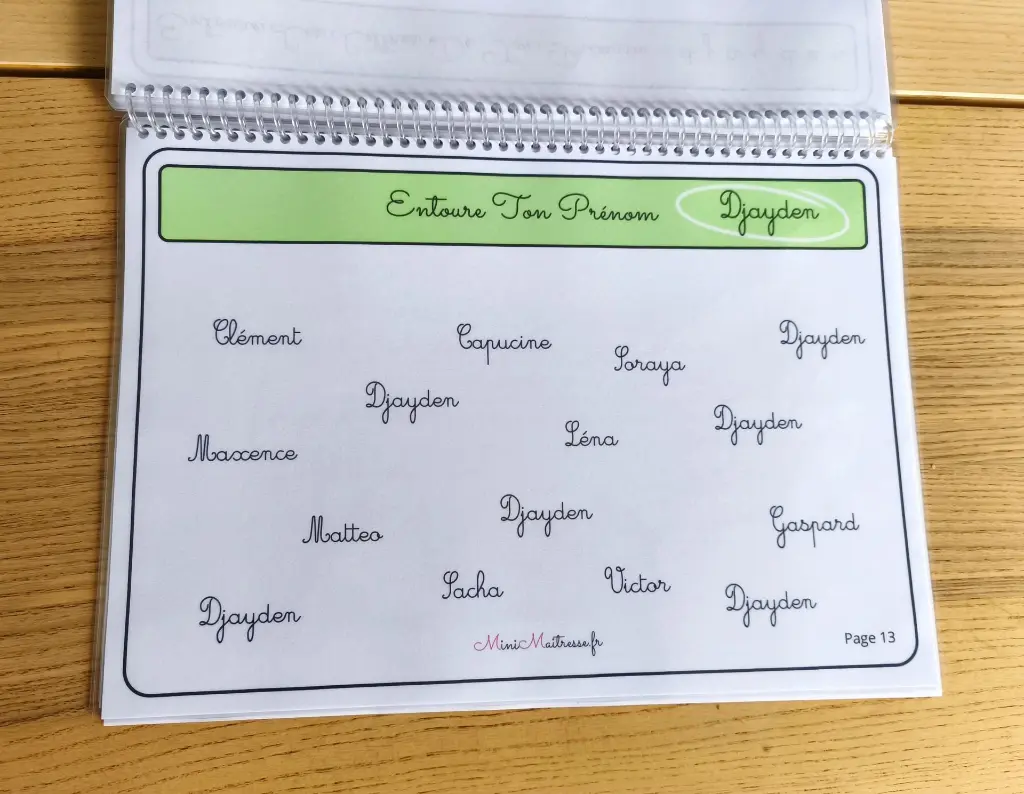 Entoure Ton Prénom Djayden
Clément Capucine Djayden
Soraya
Djayden
Djayden
Léna
Maxence
Djayden
Gaspard
Matteo
Sacha Victor
Djayden
Djayden
MiniMaîtresse.fr
Page 13